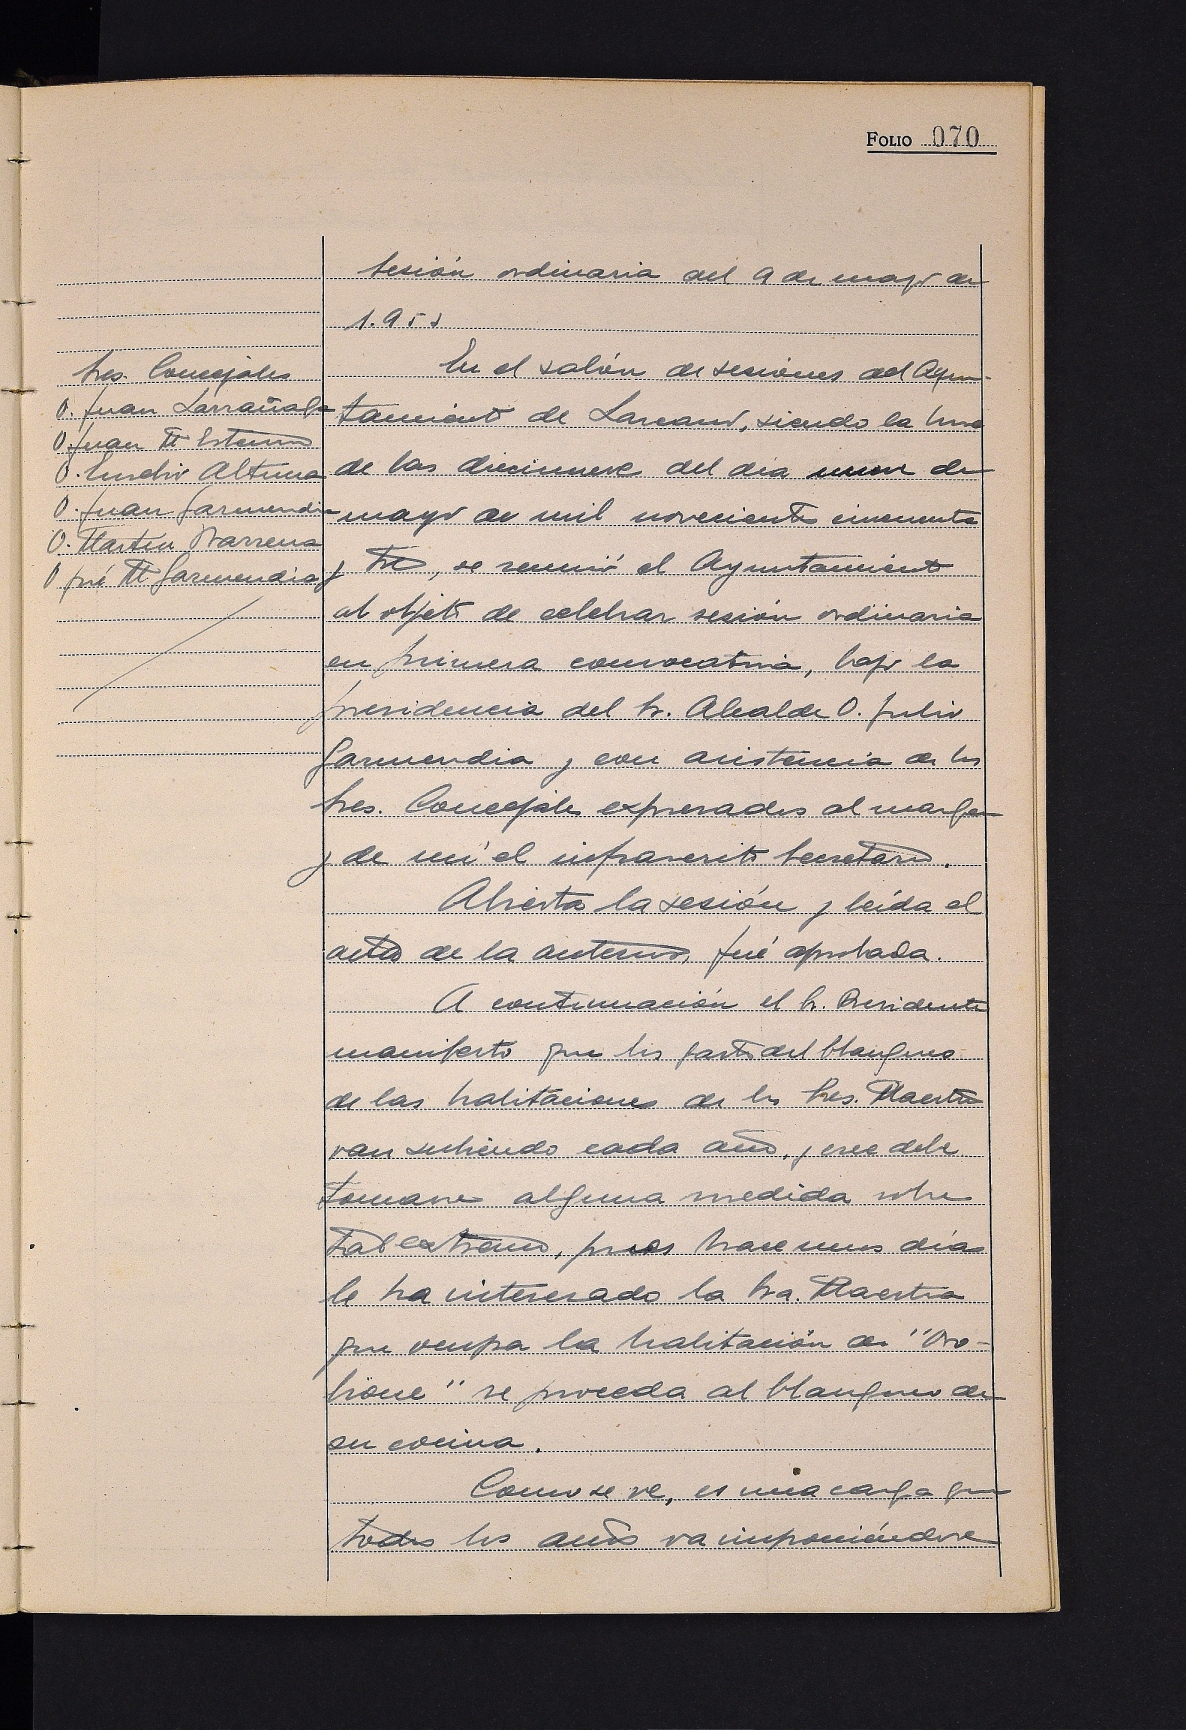 FOLIO 070
Sesión ordinaria del 9 de mayo de
1.953
Sres. Concejales
D. Juan Larrañaga
D. Juan Mª
D. Eusebio Altuna
D. Juan Garmendia
D. Martín Barrena
D. José Mª Garmendia
En el salón de sesiones del Ayun-
tamiento de Lazcano, siendo la hora
de las diecinueve del día nueve de
mayo de mil novecientos cincuenta
y tres, se reunió el Ayuntamiento
al objeto de celebrar sesión ordinaria
en primera convocatoria, bajo la
presidencia del Sr. Alcalde D. Julio
Garmendia y con asistencia de los
Sres. Concejales expresados al margen
y de mí el infrascrito Secretario.
Abierta la sesión y leída el
acta de la anterior, fué aprobada.
A continuación el Sr. Presidente
manifestó que los gastos del blanqueo
de las habitaciones de los Sres. Maestros
van subiendo cada año, y cree debe
tomarse alguna medida sobre
tal extremo, pues hace unos días
le ha interesado la Sra. Maestra
que ocupa la habitación de "Oro-
bione" se proceda al blanqueo de
su cocina.
Como se ve, es una carga que
todos los años va imponiéndose